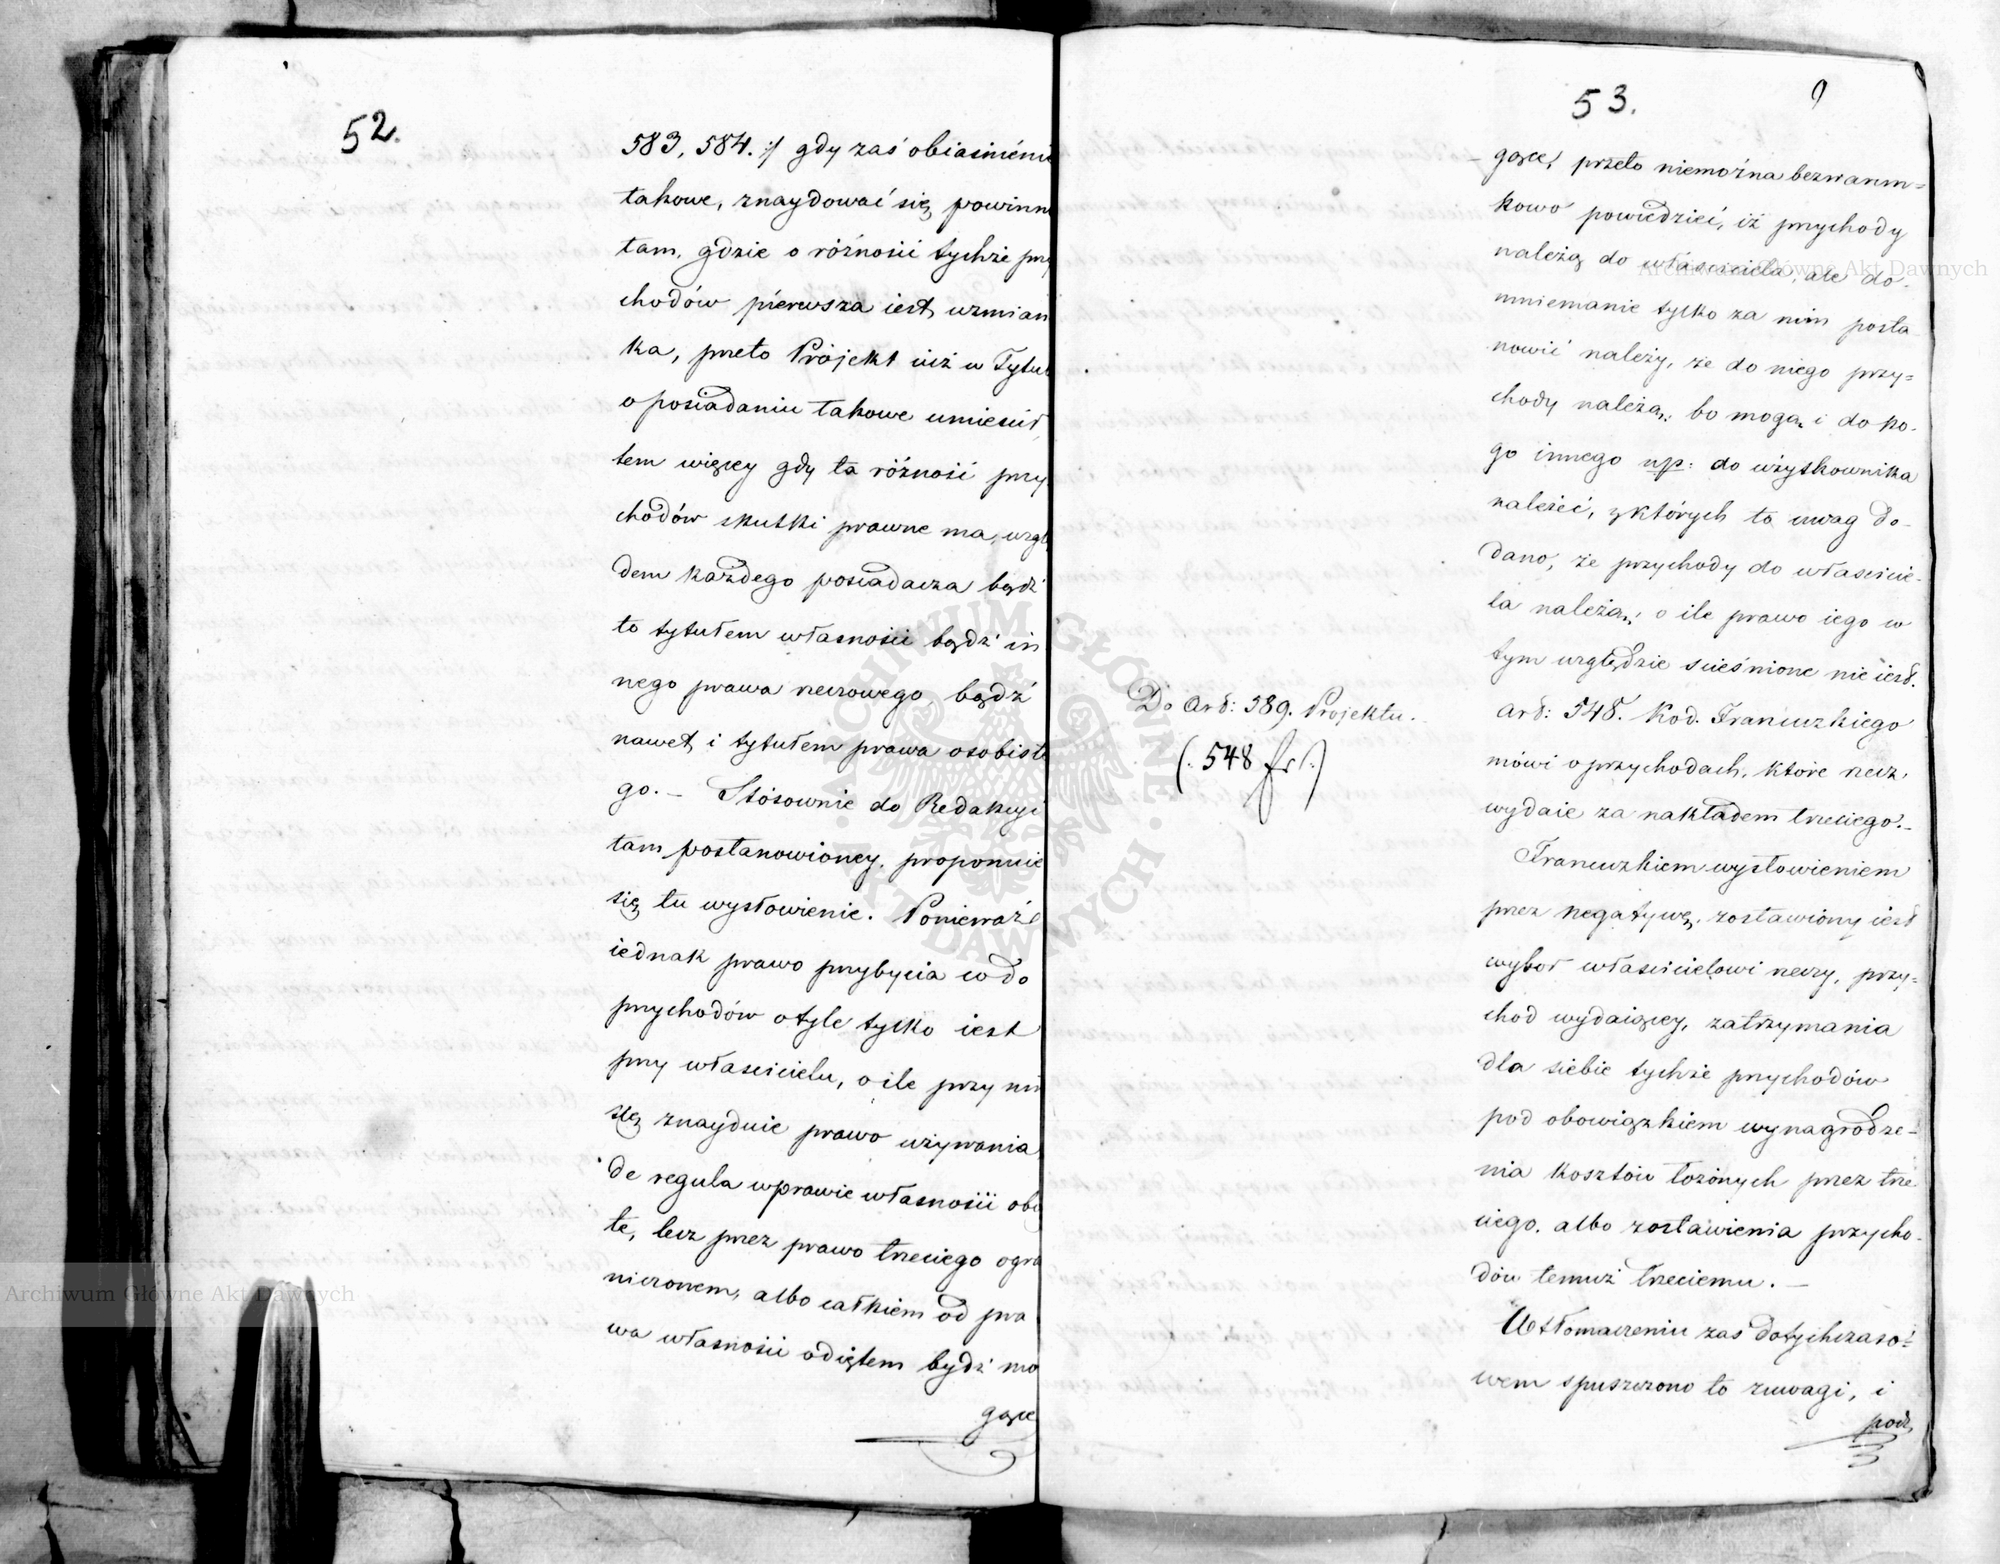 52.
583, 584. :/ gdy zaś obiaśnieni
takowe, znaydować się powinn
tam, gdzie o różności tychże przy
chodów pierwsza iest wzmian
ka, przeto Projekt iuż w Tytul
o posiadaniu takowe umieścił,
tem więcey gdy ta różność przy
chodów skutki prawne ma, wzgl
dem każdego posiadacza bądź
to tytułem własności bądź in
nego prawa rzeczowego, bądź
nawet i tytułem prawa osobiste
go. – Stósownie do Redakcyi
tam postanowioney, proponuie
się tu wysłowienie. Ponieważ
iednak prawo przybycia co do
przychodów o tyle tylko iest
przy właścicielu, o ile przy nim
się znayduie prawo używania
de regula w prawie własności obię
te, lecz przez prawo trzeciego ogra
niczonem, albo całkiem od pra
wa własności odiętem bydź mo
gące
53.
9
– gące, przeto niemożna bezwarun=
kowo powiedzieć, iż przychody
należą do właściciela, ale do-
mniemanie tylko za nim posta
nowić należy, że do niego przy=
chody należą; bo mogą i do ko-
go innego np: do użytkownika
należeć, z których to uwag do-
dano, że przychody do właścicie-
la należą, o ile prawo iego w
tym względzie ścieśnione nie iest.
Do Art: 589. Projektu.
(: 548 fr :)
Art: 548. Kod. Francuzkiego
mówi o przychodach, które rzecz
wydaie za nakładem trzeciego. –
Francuzkiem wysłowieniem
przez negatywę, zostawiony iest
wybor właścicielowi rzeczy, przy=
chod wydaiącey, zatrzymania
dla siebie tychże przychodów
pod obowiązkiem wynagrodze-
nia kosztów łożonych przez trze
ciego, albo zostawienia przycho-
dów temuż trzeciemu. –
W tłomaczeniu zaś dotychczaso=
wem spuszczono to z uwagi, i
podz
Archiwum Główne Akt Dawnych
Archiwum Główne Akt Dawnych
ARCHIWUM GŁÓWNE AKT DAWNYCH